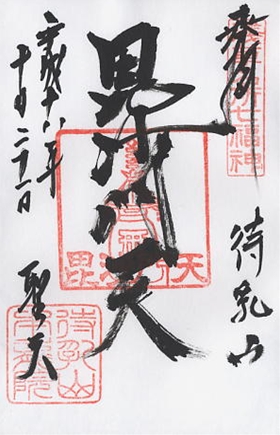 奉拝
七福神
待乳山
毘沙門天
毘沙門天
聖天
待乳山
本龍院
平成十八年
十月二十一日